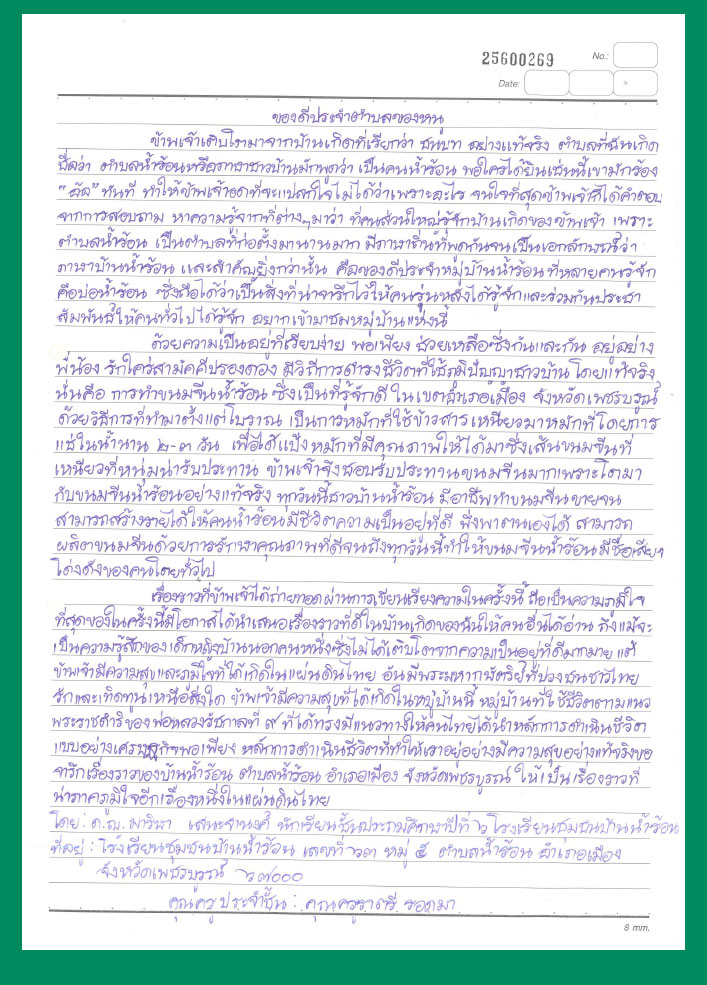 25600269
No.:
Date:
ของดีประจำตำบลของหนู
ข้าพเจ้าเติบโตมาจากบ้านเกิดที่เรียกว่า ชนบท อย่างแท้จริง ตำบลที่ฉันเกิด
ชื่อว่า ตำบลน้ำร้อนหรือภาษาชาวบ้านมักพูดว่า เป็นคนน้ำร้อน พอใครได้ยินเช่นนี้เขามักร้อง
ทันที ทำให้ข้าพเจ้าอดที่จะแปลกใจไม่ได้ว่าเพราะอะไร จนในที่สุดข้าพเจ้าก็ได้คำตอบ
จากการสอบถาม หาความรู้จากที่ต่างๆมาว่า ที่คนส่วนใหญ่รู้จักบ้านเกิดของข้าพเจ้า เพราะ
ตำบลน้ำร้อน เป็นตำบลที่ก่อตั้งมานานมาก มีภาษาถิ่นที่พูดกันจนเป็นเอกลักษณ์ว่า
ภาษาบ้านน้ำร้อน และสำคัญยิ่งกว่านั้น คือของดีประจำหมู่บ้านน้ำร้อน ที่หลายคนรู้จัก
คือบ่อน้ำร้อน ซึ่งถือได้ว่าเป็นสิ่งที่น่าจารึกไว้ให้คนรุ่นหลังได้รู้จักและร่วมกันประชา
สัมพันธ์ให้คนทั่วไปได้รู้จัก อยากเข้ามาชมหมู่บ้านแห่งนี้
ด้วยความเป็นอยู่ที่เรียบง่าย พอเพียง ช่วยเหลือซึ่งกันและกัน อยู่อย่าง
พี่น้อง รักใคร่สามัคคีปรองดอง มีวิถีการดำรงชีวิตที่ใช้ภูมิปัญญาชาวบ้าน โดยแท้จริง
นั่นคือ การทำขนมจีนน้ำร้อน ซึ่งเป็นที่รู้จักดี ในเขตอำเภอเมือง จังหวัดเพชรบูรณ์
ด้วยวิธีการที่ทำมาตั้งแต่โบราณ เป็นการหมักที่ใช้ข้าวสารเหนียวมาหมักที่โดยการ
แช่ในน้ำนาน ๒-๓ วัน เพื่อได้แป้งหมักที่มีคุณภาพให้ได้มาซึ่งเส้นขนมจีนที่
เหนียวที่หนุ่มน่ารับประทาน ข้าพเจ้าจึงชอบรับประทานขนมจีนมากเพราะโตมา
กับขนมจีนน้ำร้อนอย่างแท้จริง ทุกวันนี้ชาวบ้านน้ำร้อน มีอาชีพทำขนมจีนขายจน
สามารถสร้างรายได้ให้คนน้ำร้อนมีชีวิตความเป็นอยู่ที่ดี พึ่งพาตนเองได้ สามารถ
ผลิตขนมจีนด้วยการรักษาคุณภาพที่ดีจนถึงทุกวันนี้ทำให้ขนมจีนน้ำร้อนมีชื่อเสียง
โด่งดังของคนโดยทั่วไป
เรื่องราวที่ข้าพเจ้าได้ถ่ายทอดผ่านการเขียนเรียงความในครั้งนี้ ถือเป็นความภูมิใจ
ที่สุดของในครั้งนี้มีโอกาสได้นำเสนอเรื่องราวที่ดีในบ้านเกิดของฉันให้คนอื่นได้อ่าน ถึงแม้จะ
เป็นความรู้สึกของเด็กหญิงบ้านนอกคนหนึ่งซึ่งไม่ได้เติบโตจากความเป็นอยู่ที่ดีมากมาย แต่
ข้าพเจ้ามีความสุขและภูมิใจที่ได้เกิดในแผ่นดินไทย อันมีพระมหากษัตริย์ที่ปวงชนชาวไทย
รักและเทิดทูนเหนือสิ่งใด ข้าพเจ้ามีความสุขที่ได้เกิดในหมู่บ้านนี้ หมู่บ้านที่ใช้ชีวิตตามแนว
พระราชดำริของพ่อหลวงรัชกาลที่ ๙ ที่ได้ทรงมีแนวทางให้คนไทยได้นำหลักการดำเนินชีวิต
แบบอย่างเศรษฐกิจพอเพียง หลักการดำเนินชีวิตที่ทำให้เราอยู่อย่างมีความสุขอย่างแท้จริงขอ
จารึกเรื่องราวของบ้านน้ำร้อน ตำบลน้ำร้อน อำเภอเมือง จังหวัดเพชรบูรณ์ ให้เป็นเรื่องราวที่
น่าภาคภูมิใจอีกเรื่องหนึ่งในแผ่นดินไทย
โดย: ด.ญ. มาริษา เสนะจานงค์ นักเรียนชั้นประถมศึกษาปีที่ ๖ โรงเรียนชุมชนบ้านน้ำร้อน
ที่อยู่ : โรงเรียนชุมชนบ้านน้ำร้อน เลขที่ ๖๓ หมู่ ๕ ตำบลน้ำร้อน อำเภอเมือง
จังหวัดเพชรบูรณ์ ๖๗๐๐๐
คุณครูประจำชั้น : คุณครูราตรี รอดมา
8 mm.